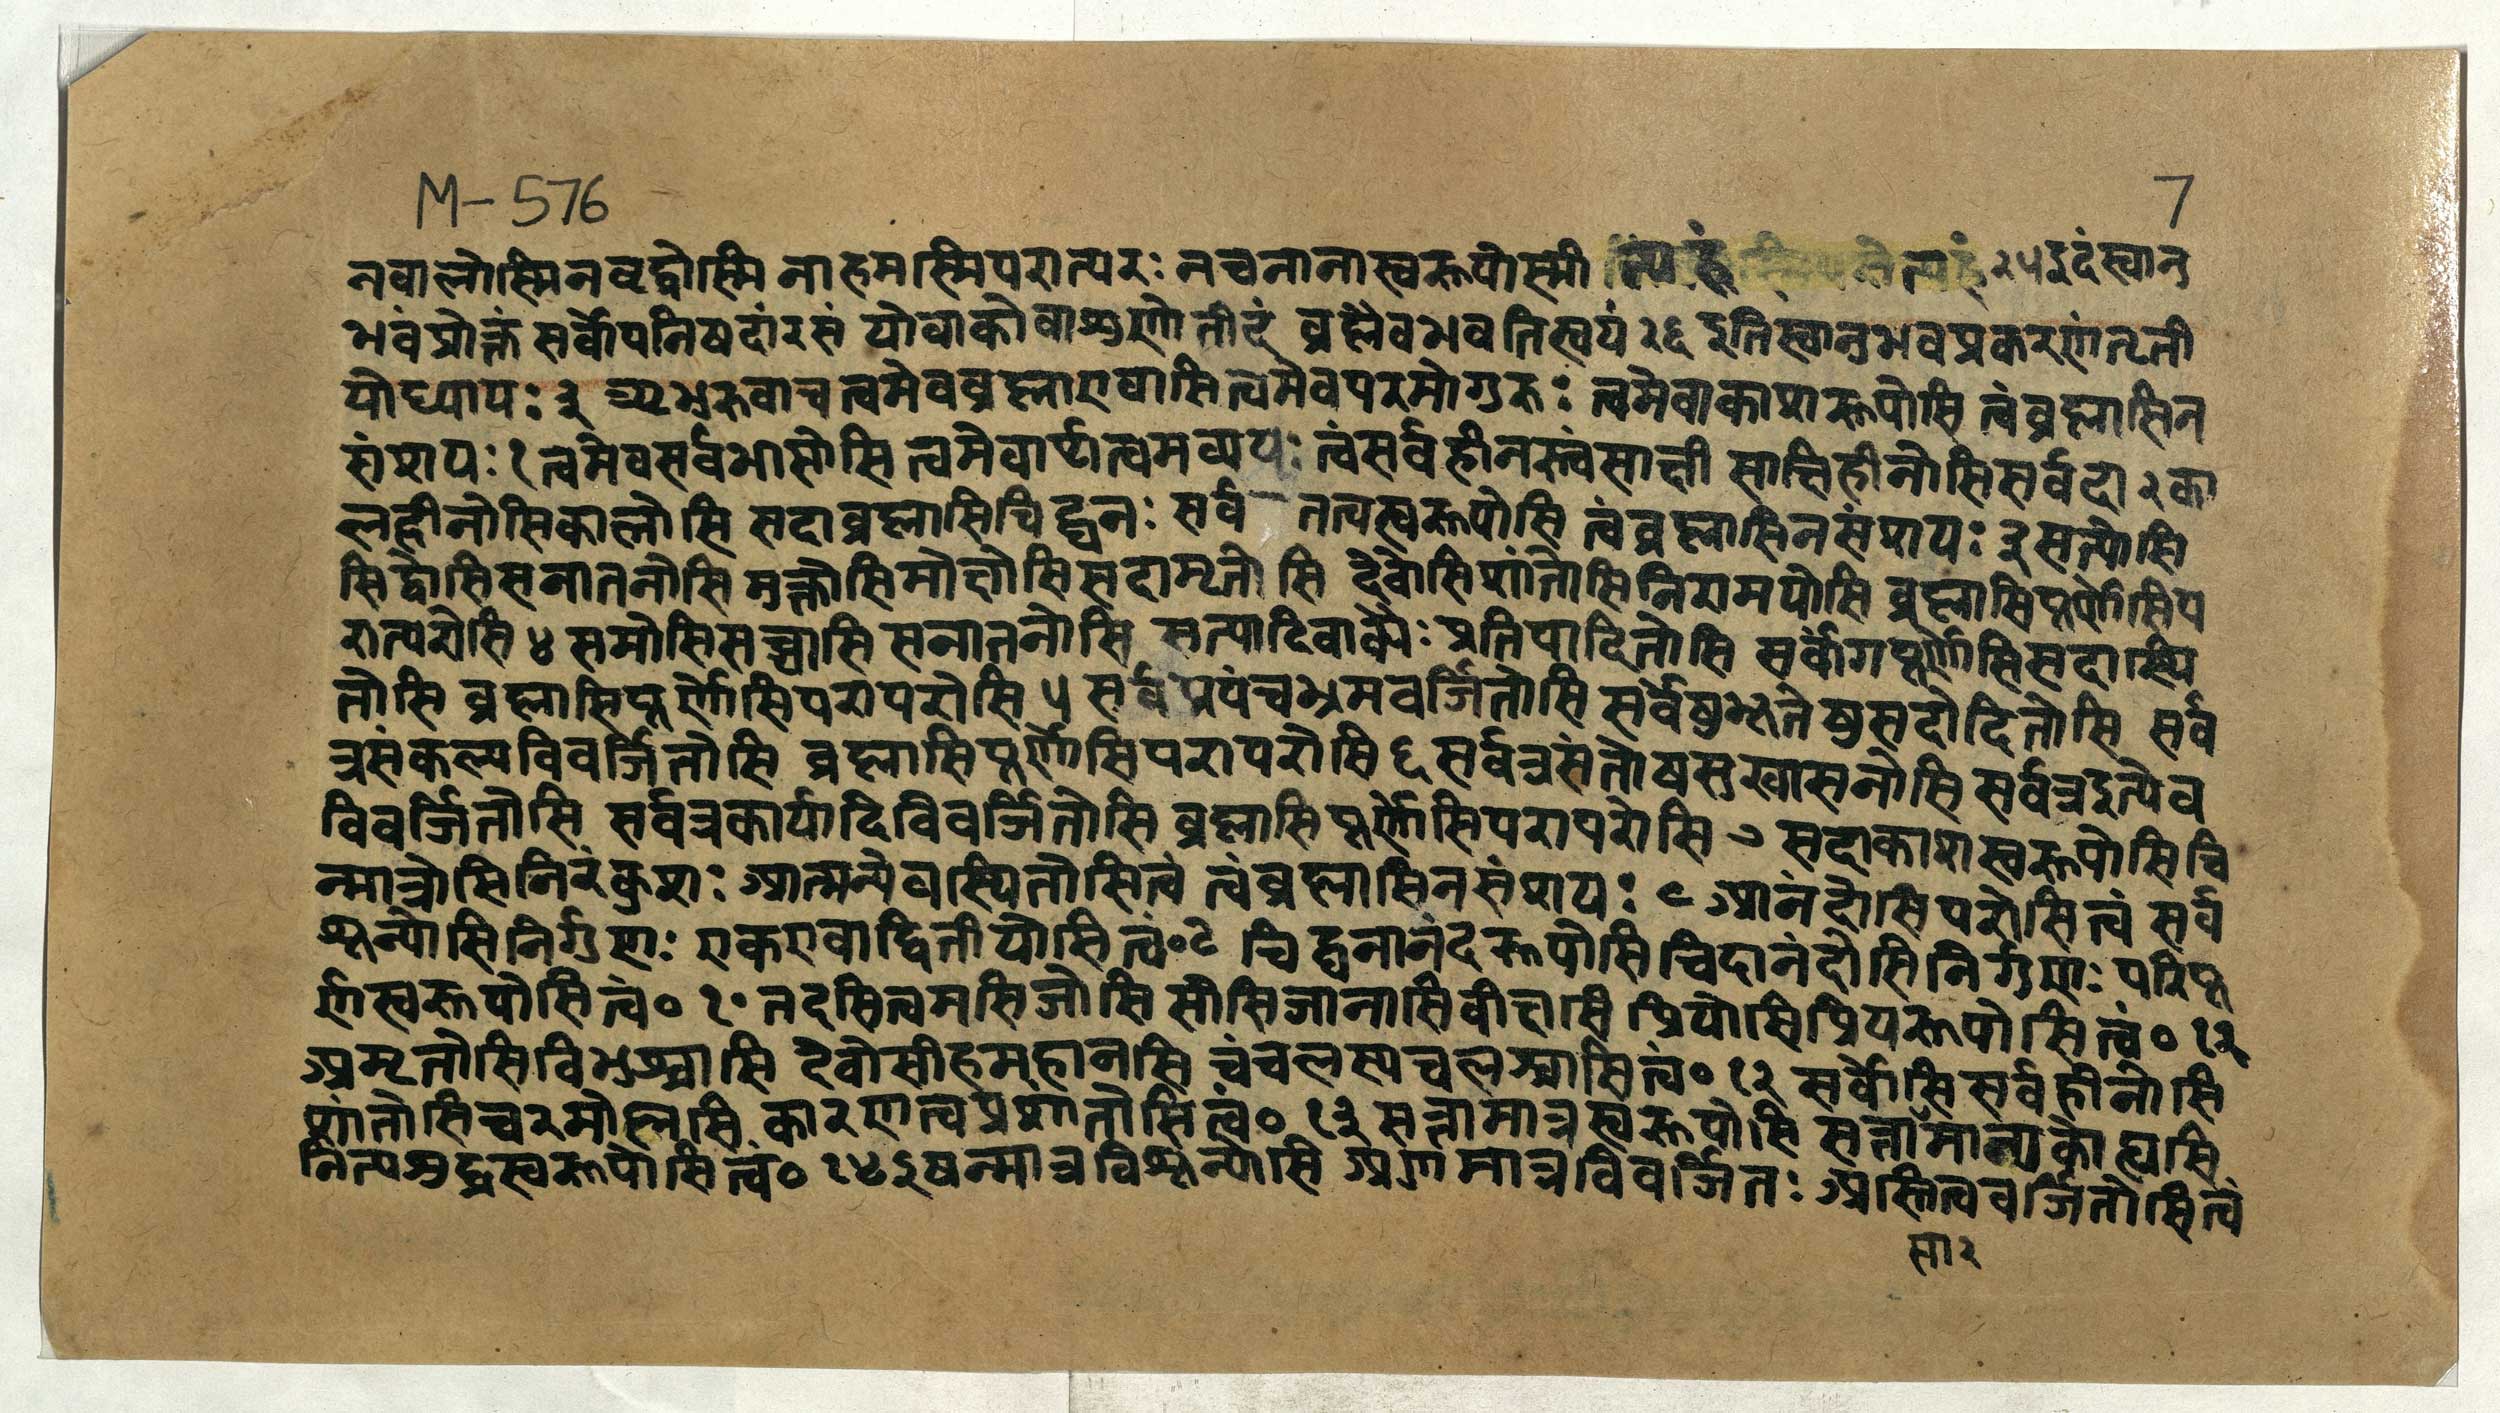 M-576
7
नवालोस्मिनवृद्धोस्मि नाहमस्मिपरात्परः नचनानास्वरूपोस्मी त्यहं त्यहं २५ इदंस्वानु
भवंप्रोक्तं सर्वोपनिषदांरसं योवाकोवाशृणोतीदं ब्रह्मैवभवतिस्वयं २६ इतिस्वानुभवप्रकरणंतृती
योध्यायः ३ ऋभुरुवाच त्वमेवब्रह्माएवासित्वमेवपरमोगुरुः त्वमेवाकाशरूपोसि त्वंब्रह्मासिन
संशयः १ त्वमेवसर्वभासोसि त्वमेवार्थात्वमव्ययः त्वंसर्वहीनस्त्वंसाक्षी साक्षिहीनोसिसर्वदा २ का
लहीनोसिकालोसि सदाब्रह्मासिचिद्घनः सर्व तत्वस्वरूपोसि त्वंब्रह्मासिनसंशयः ३ सत्योसि
सिद्धोसिसनातनोसि मुक्तोसिमोक्षोसिसदामृतोसि देवोसिशांतोसिनिरामयोसि ब्रह्मासिपूर्णोसिप
रात्परोसि ४ समोसिसच्चासि सनातनोसि सत्यादिवाक्यैः प्रतिपादितोसि सर्वांगपूर्णोसिसदास्थि
तोसि ब्रह्मासिपूर्णोसिपरापरोसि ५ सर्वप्रपंचभ्रमवर्जितोसि सर्वेषुभूतेषुसदोदितोसि सर्व
त्रसंकल्पविवर्जितोसि ब्रह्मासिपूर्णोसिपरापरोसि ६ सर्वत्रसंतोषसुखासनोसि सर्वत्रद्वत्येव
विवर्जितोसि सर्वत्रकार्यादिविवर्जितोसि ब्रह्मासिपूर्णोसिपरापरोसि ७ सदाकाशस्वरूपोसिचि
न्मात्रोसिनिरंकुशः आत्मन्येवस्थितोसित्वं त्वंब्रह्मासिनसंशयः ८ आनंदोसिपरोसित्वं सर्व
शून्योसिनिर्गुणः एकएवाद्वितीयोसित्वं॰ ९ चिद्घनानंदरूपोसिचिदानंदोसिनिर्गुणः परिपू
र्णस्वरूपोसित्वं॰ १० तदसित्वमसिज्ञोसि सोसिजानासिवीक्षसि प्रियोसिप्रियरूपोसित्वं॰ ११
अमृतोसिविभुश्चासि देवोसीहमहानसि चंचलस्यचलश्चासित्वं॰ १२ सर्वोसिसर्वहीनोसि
शांतोसिच्चरमोह्यसि कारणत्वप्रशांतोसित्वं॰ १३ सत्तामात्रस्वरूपोसि सत्तासामान्यकोह्यसि
नित्यशुद्धस्वरूपोसित्वं॰ १४ ईषन्मात्रविशून्योसि अणुमात्रविवर्जितः अस्तित्ववर्जितोसित्वं
सा २